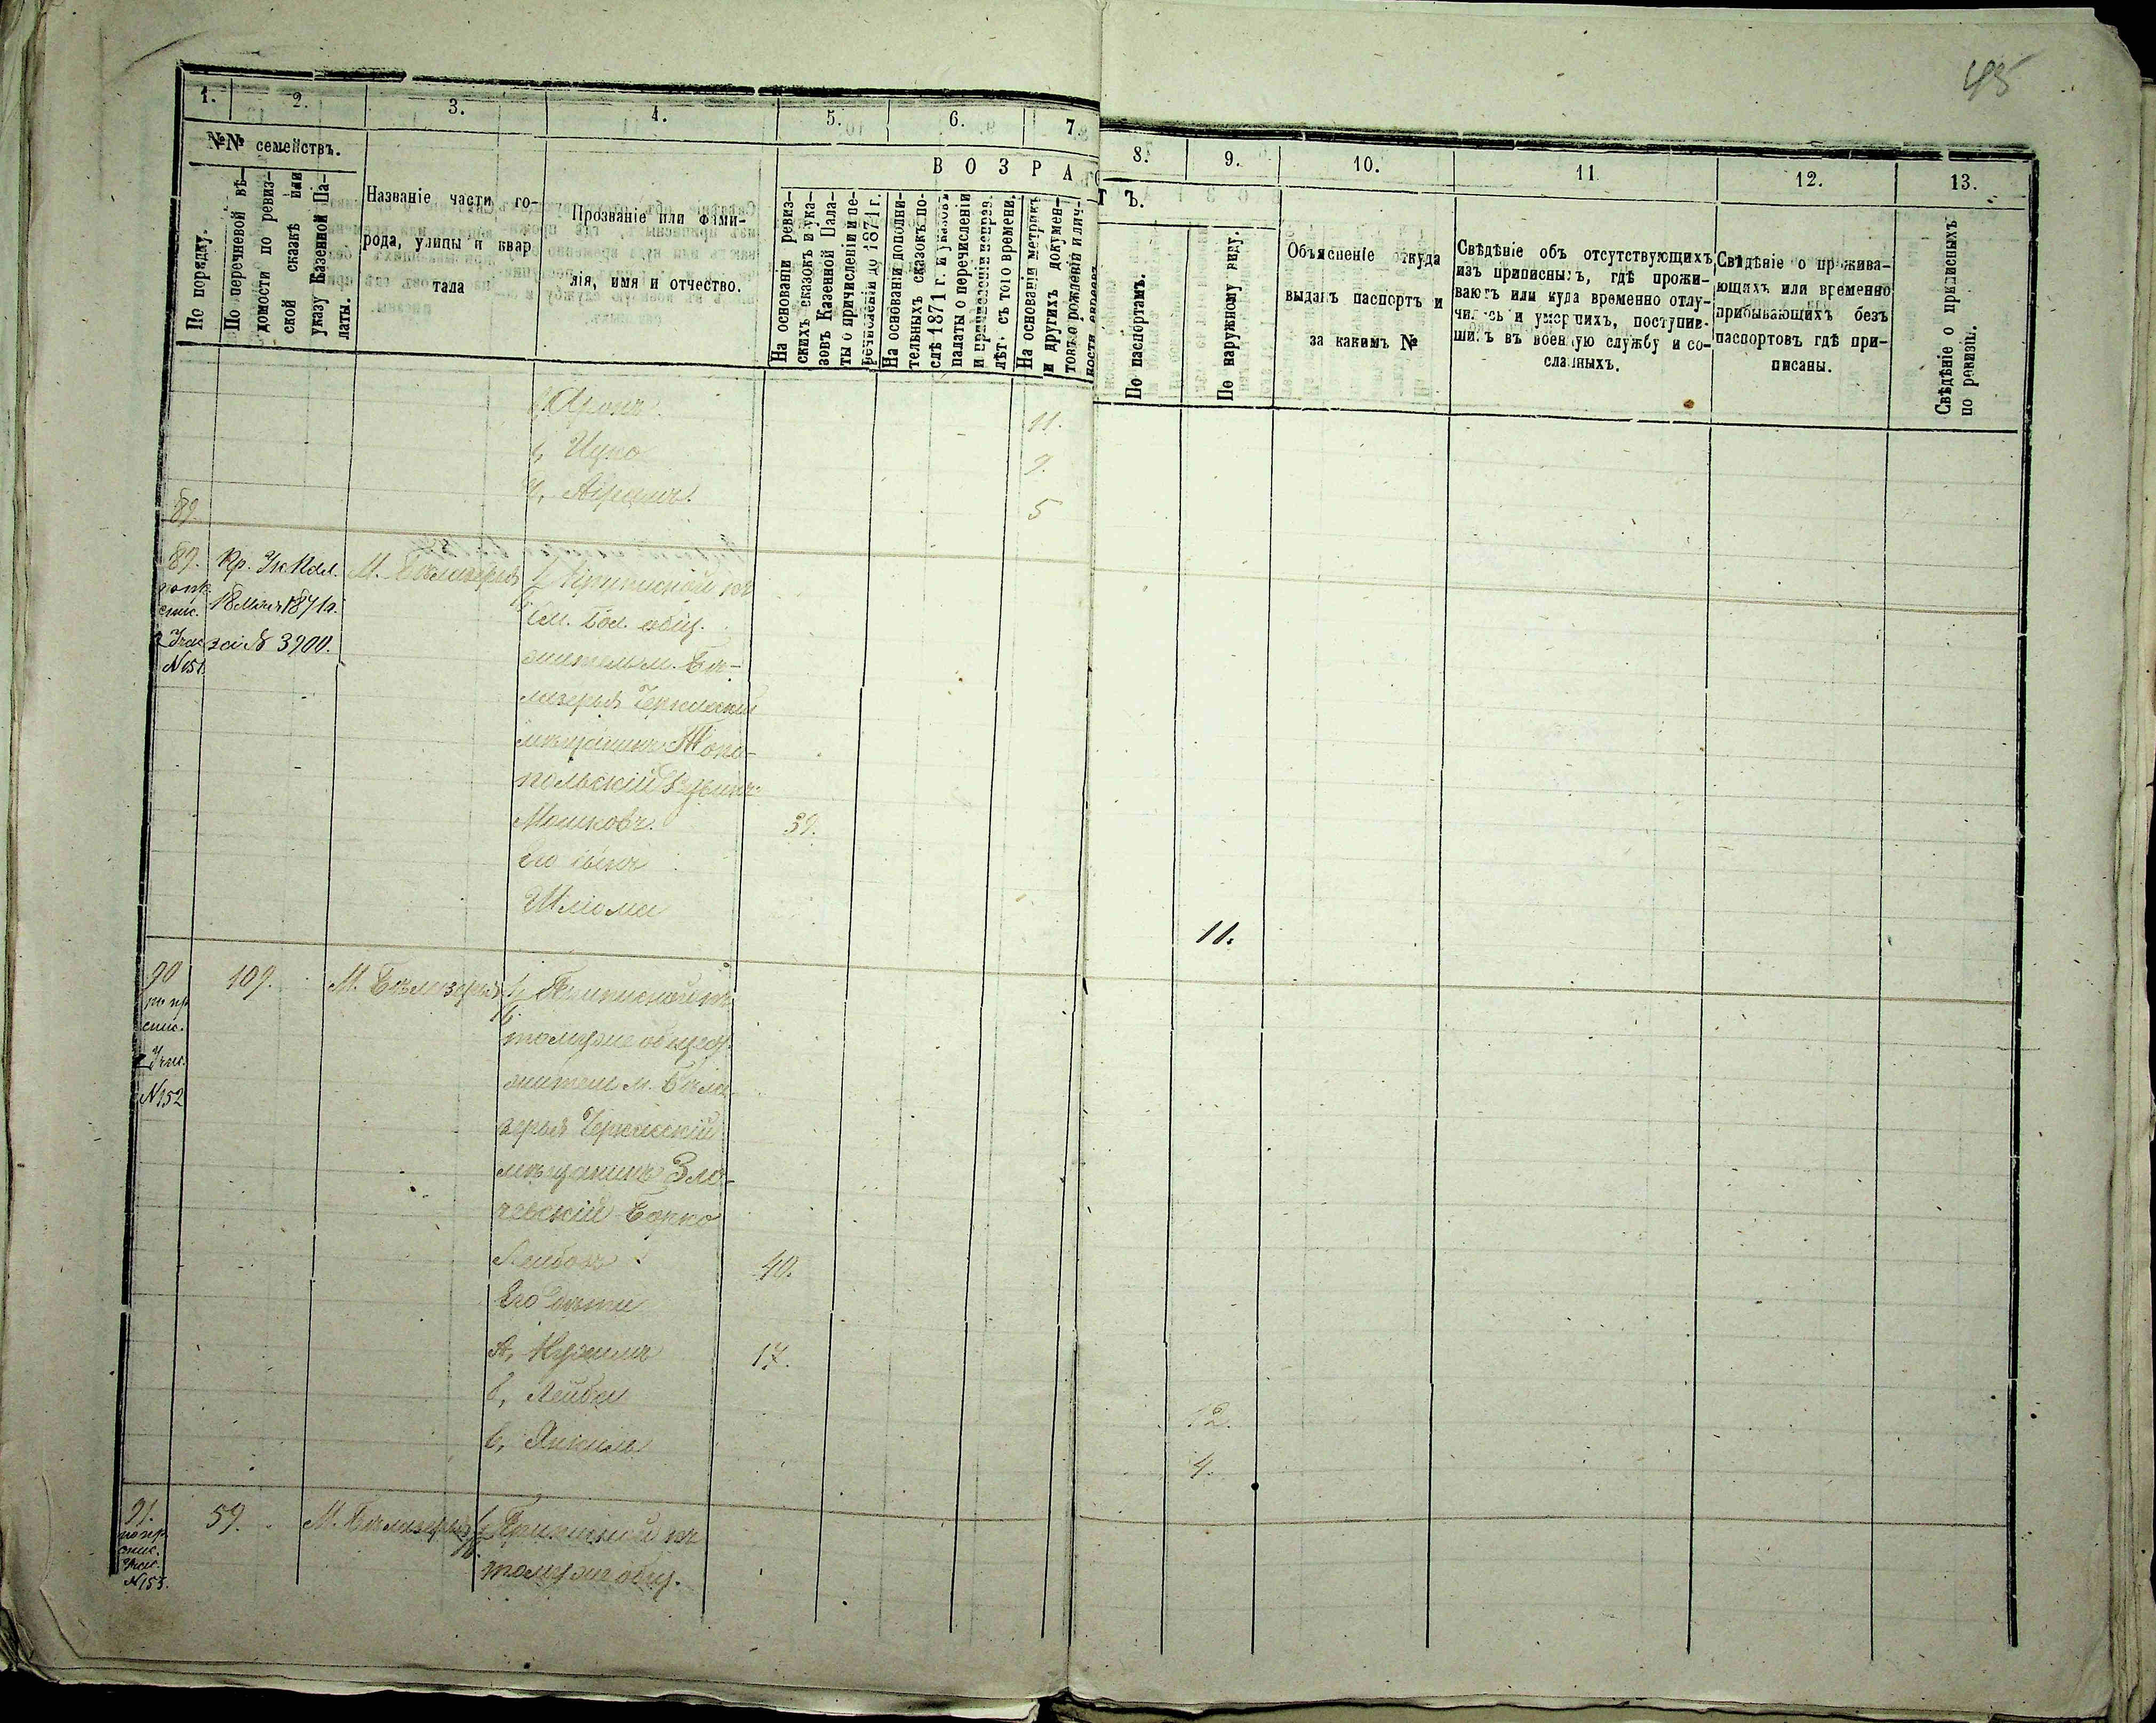 45
1. 2. 3. 4. 5. 6. 7. 8. 9. 10. 11. 12. 13.
№№ семействъ.
По порядку.
По перечневой вѣ-
домости по ревиз-
ской сказкѣ или
указу Казенной Па-
латы.
Названіе части го-
рода, улицы и квар
тала
Прозваніе или фами-
лія, имя и отчество.
ВОЗРАСТЪ.
На основаніи ревиз-
скихъ сказокъ и ука-
зовъ Казенной Пала-
ты о причисленіи и пе-
речисленіи до 1871 г.
На основаніи дополни-
тельныхъ сказокъ по-
слѣ 1871 г. и указовъ
палаты о перечисленіи
и причисленіи неправ.
лѣт. съ того времени.
На основаніи метрикъ
и другихъ докумен-
товъ о рожденіи и лич-
ности евреевъ
По паспортамъ.
По наружному виду.
Объясненіе откуда
выданъ паспортъ и
за какимъ №
Свѣдѣніе объ отсутствующихъ
изъ приписныхъ, гдѣ прожи-
ваютъ или куда временно отлу-
чились и умершихъ, поступив-
шихъ въ военную службу и со-
сланныхъ.
Свѣдѣніе о прожива-
ющихъ или временно
прибывающихъ безъ
паспортовъ гдѣ при-
писаны.
Свѣдѣніе о приписныхъ
по ревизіи.
Аронъ. 11.
Ицко 9.
Абрамъ. 5
89
89. Кр. Ук. Пал. М. Бѣлозерье Приписной къ
18 Мая 1871 г. См. Бол. общ.
за № 3900. житель м. Бѣ-
N 151
лозерья Черкаскій
мѣщанинъ Топо-
польскій
Мошковъ. 39.
Его сынъ
Шлома 11.
90 109. М. Бѣлозерье Приписной къ
по пр. спис. томуже общес.
житель м. Бѣло-
N 152
зерья Черкаскій
мѣщанинъ Зла-
чевскій Борко
Лейбовъ 40.
Его дѣти
а, Нухимъ 17.
б, Лейба 12.
в, Янкель 4.
91. 59. М. Бѣлозерье Приписной къ
по пр. спис. томуже общ.
N 153.